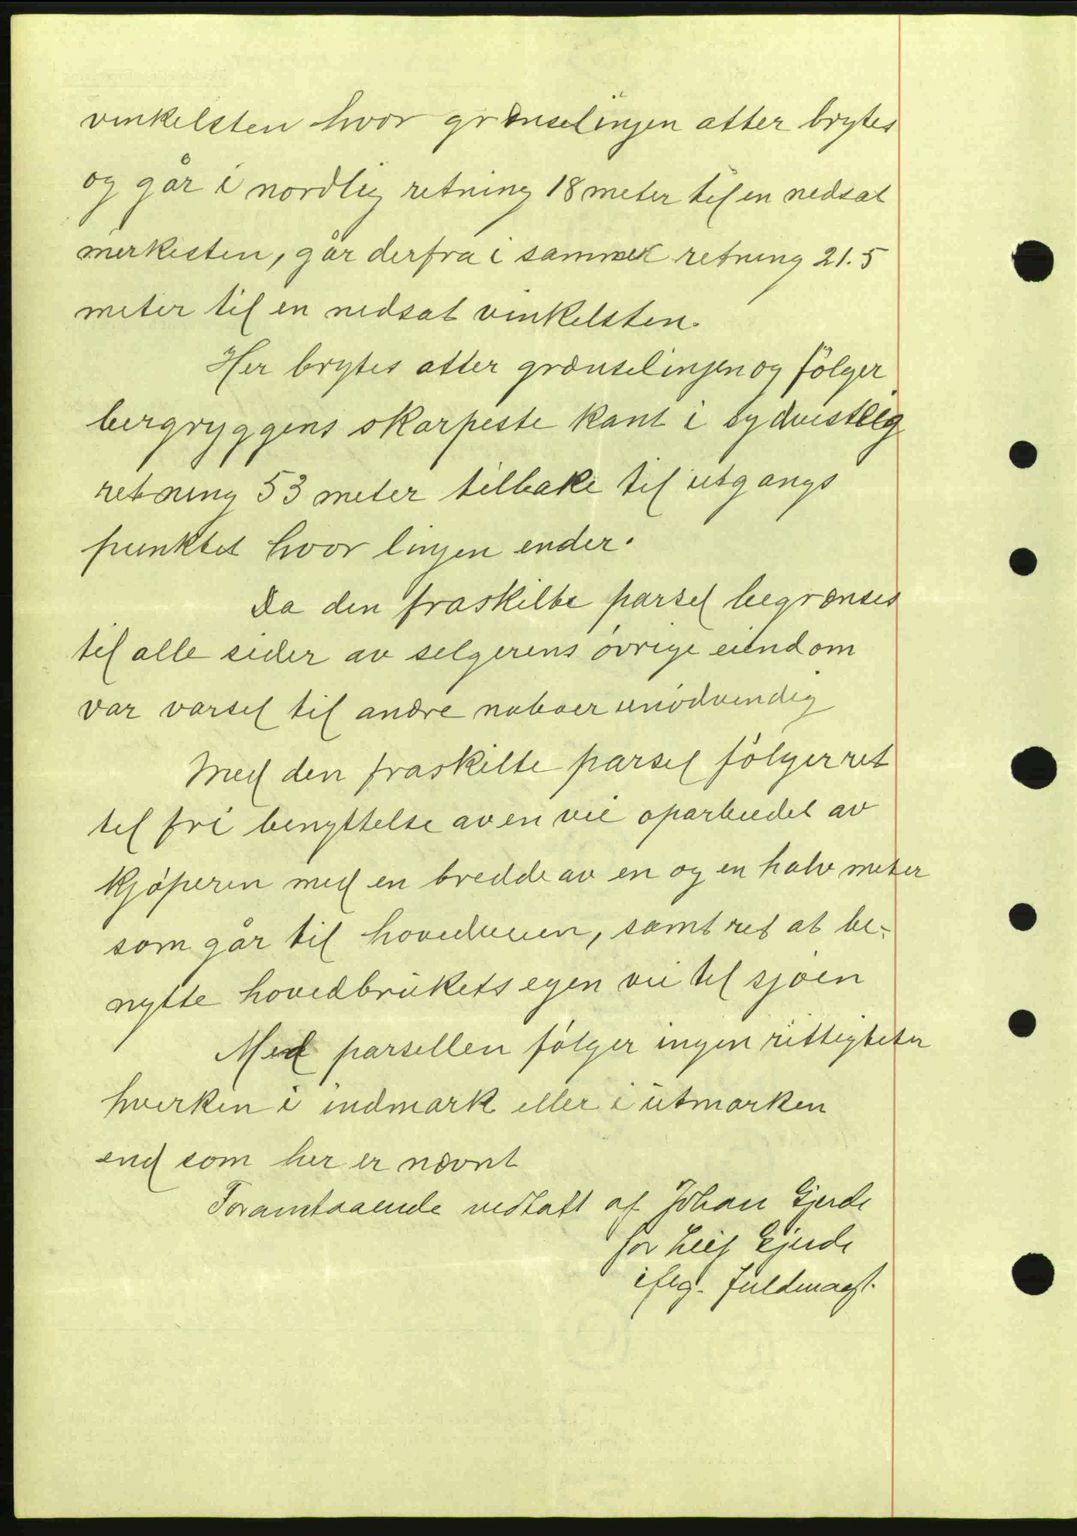 vinkelsten hvor grænselinjen atter brytes
og går i nordlig retning 18 meter til en nedsat
merkesten, går derfra i samme retning 21.5
meter til en nedsat vinkelsten.
Her brytes atter grænselinjen og følger
bergryggens skarpeste kant i sydvestlig
retning 53 meter tilbake til utgangs
punktet hvor linjen ender.
Da den fraskilte parsel begrænses
til alle sider av selgerens øvrige eiendom
var varsel til andre naboer unødvendig
Med den fraskilte parsel følger ret
til fri benyttelse av en vei oparbeidet av
kjøperen med en bredde av en og en halv meter
som går til hovedveien, samt ret at be-
nytte hovedbrukets egen vei til sjøen
Med parsellen følger ingen rettigheter
hverken i indmark eller i utmarken
end som her er nævnt
Foranstaaende vedtatt af Johan Gjerde
for Leif Gjerde
iflg. fuldmagt.